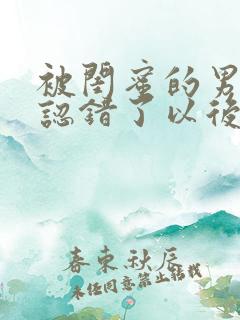 被閨蜜的男
認錯了以後
春東秋辰
未經同意禁止轉載